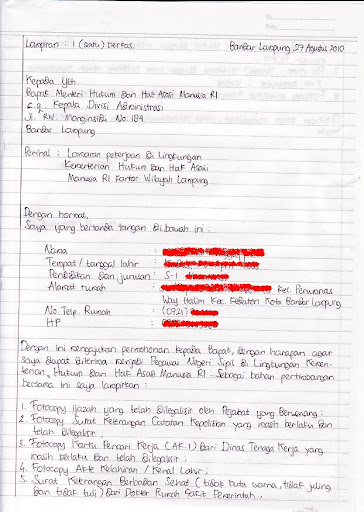 No.
Date.
Lampiran : 1 (satu) berkas. Bandar Lampung, 27 Agustus 2010
Kepada Yth.
Bapak Menteri Hukum dan Hak Asasi Manusia RI
c.q. Kepala Divisi Administrasi
Jl. RW. Monginsidi No. 184
Bandar Lampung
Perihal : Lamaran pekerjaan di Lingkungan
Kementerian Hukum dan Hak Asasi
Manusia RI Kantor Wilayah Lampung
Dengan hormat,
Saya yang bertanda tangan di bawah ini :
Nama :
Tempat / tanggal lahir :
Pendidikan dan jurusan : S-1
Alamat rumah : Kel. Perumnas
Way Halim Kec. Kedaton Kota Bandar Lampung
No. Telp. Rumah : (0721)
HP :
Dengan ini mengajukan permohonan kepada Bapak, dengan harapan agar
saya dapat diterima menjadi Pegawai Negeri Sipil di Lingkungan Kemen-
terian Hukum dan Hak Asasi Manusia RI. Sebagai bahan pertimbangan
bersama ini saya lampirkan :
1. Fotocopy Ijazah yang telah dilegalisir oleh Pejabat yang berwenang ;
2. Fotocopy Surat Keterangan Catatan Kepolisian yang masih berlaku dan
telah dilegalisir ;
3. Fotocopy Kartu Pencari Kerja (AK-1) dari Dinas Tenaga Kerja yang
masih berlaku dan telah dilegalisir ;
4. Fotocopy Akte Kelahiran / Kenal Lahir ;
5. Surat Keterangan Berbadan Sehat (tidak buta warna, tidak juling
dan tidak tuli) dari Dokter Rumah Sakit Pemerintah ;